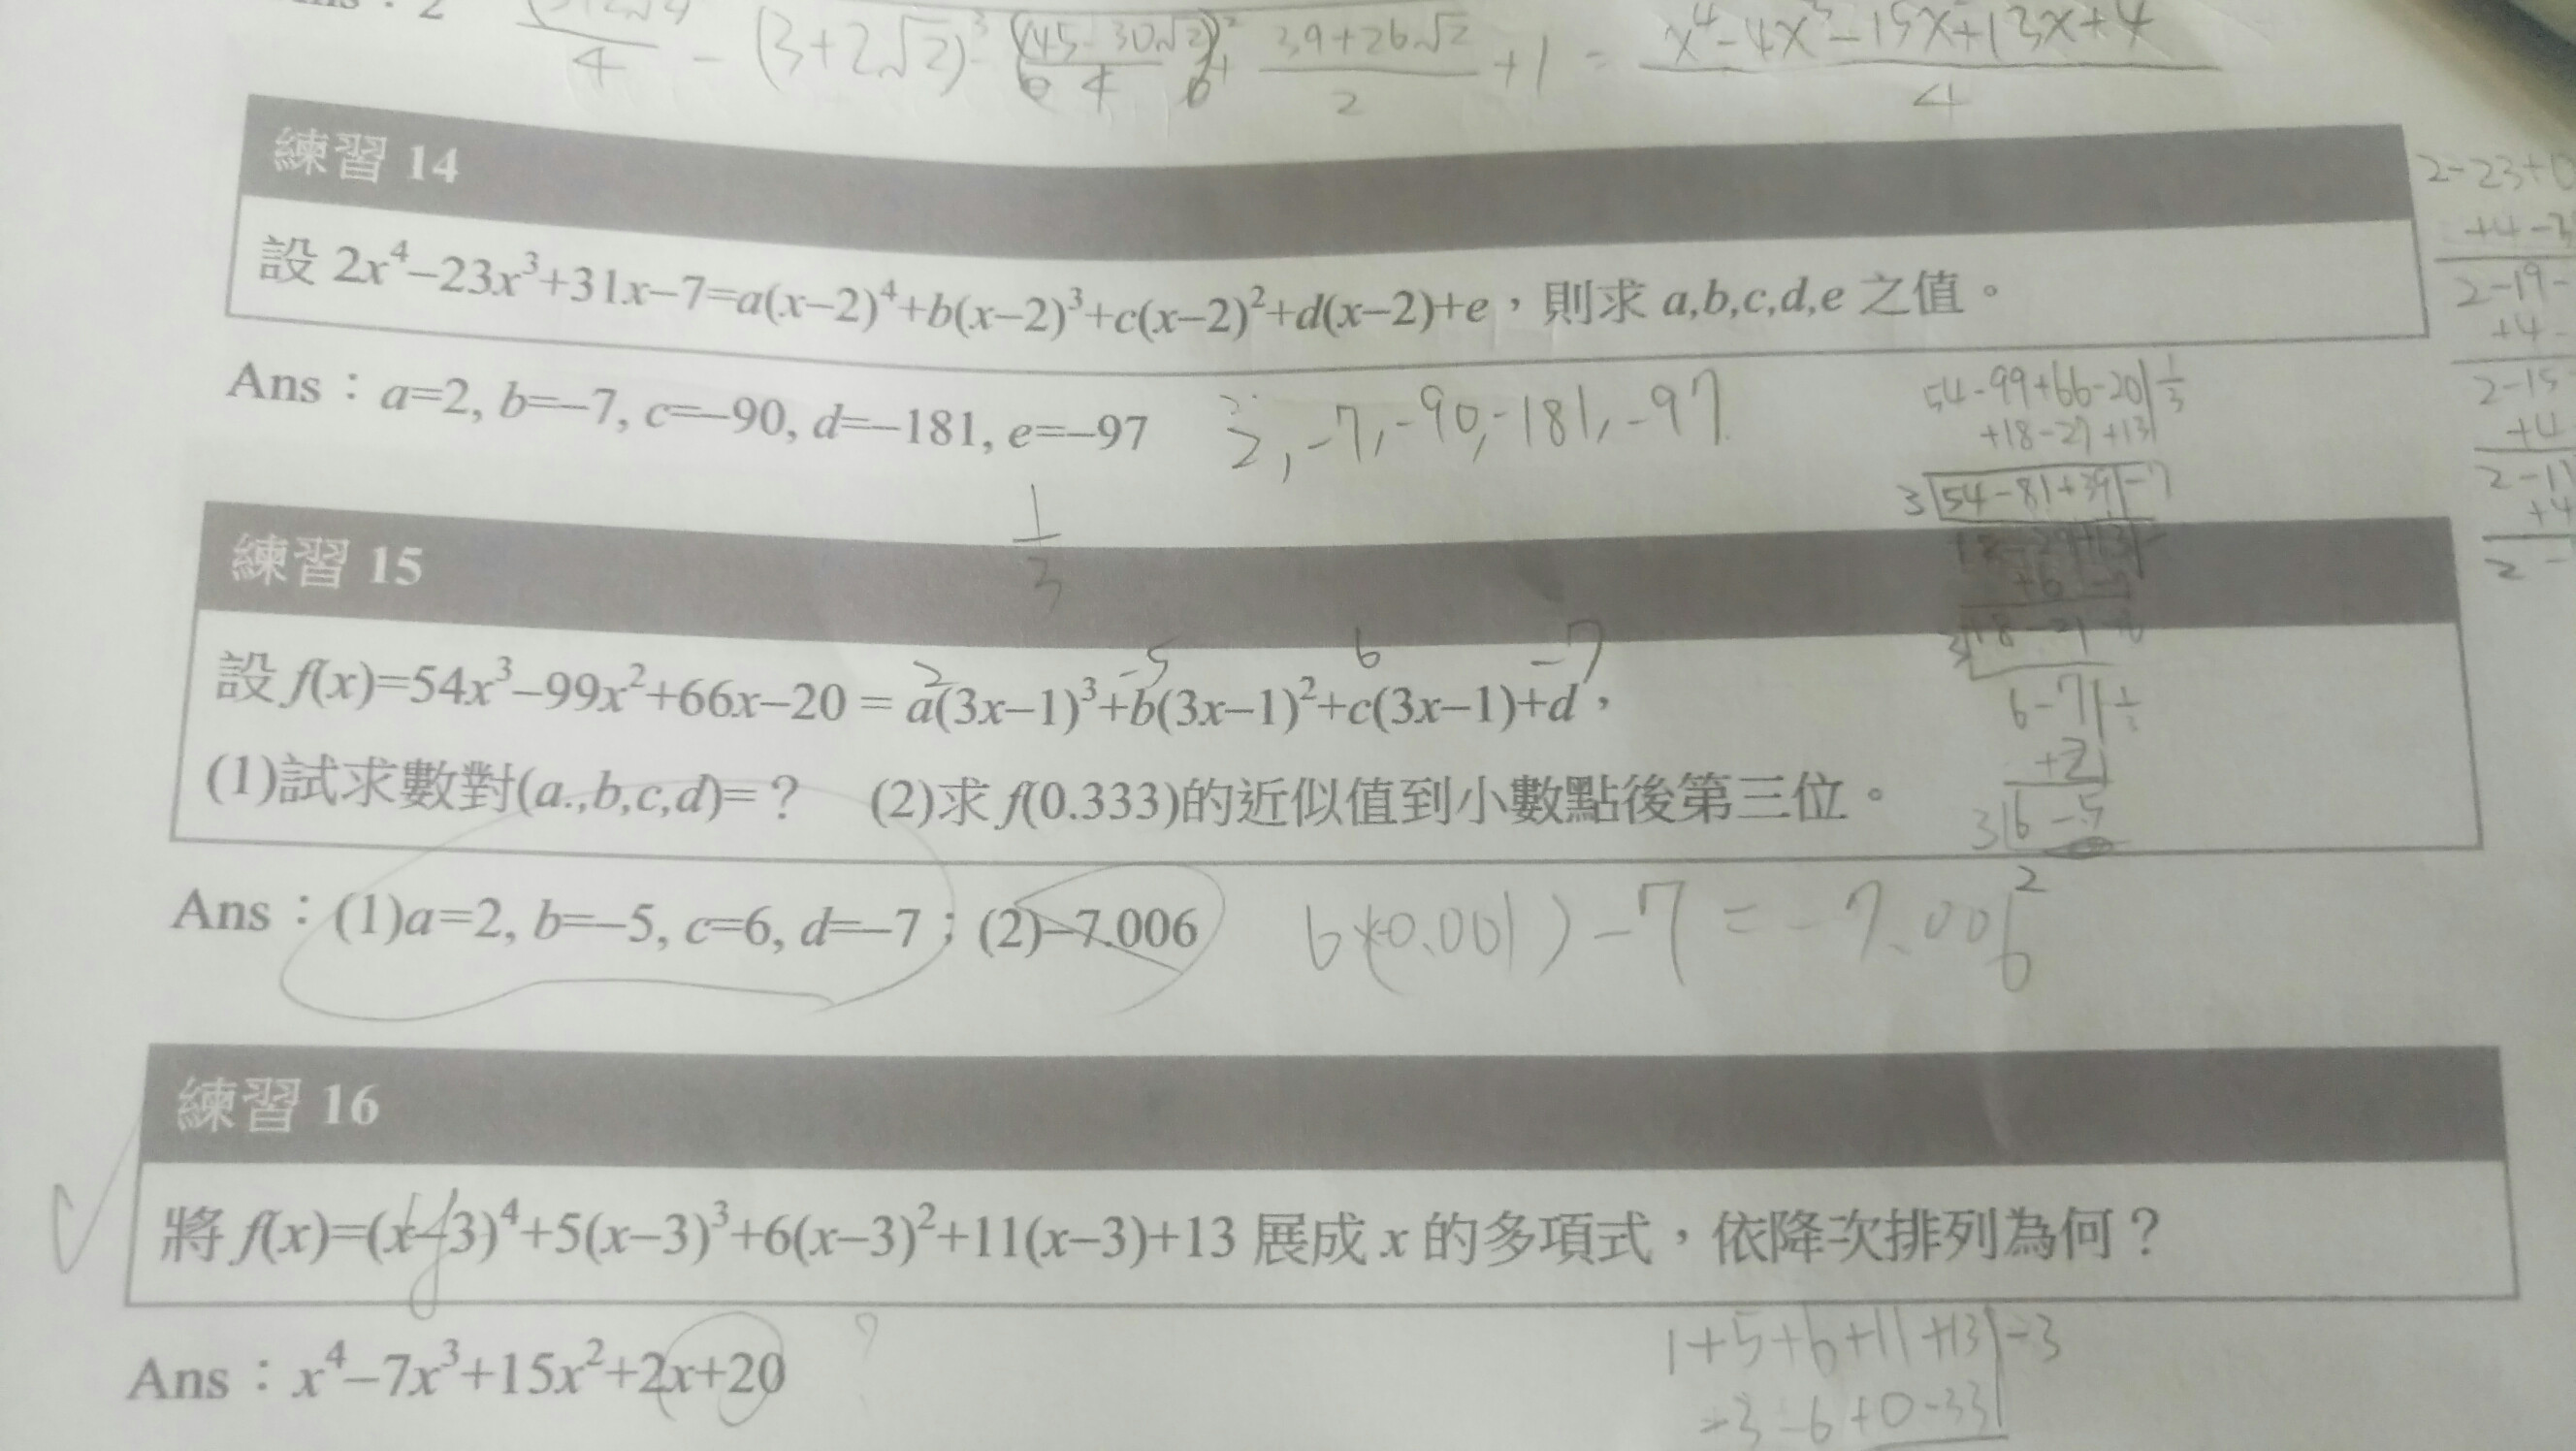 4 - (3+2√2)³ - (45-30√2)/4 + (39+26√2)/2 + 1 = (x⁴-4x³-15x+13x+4)/4
練習 14
設 2x⁴–23x³+31x–7=a(x–2)⁴+b(x–2)³+c(x–2)²+d(x–2)+e，則求 a,b,c,d,e 之值。
Ans：a=2, b=–7, c=–90, d=–181, e=–97
2, -7, -90, -181, -97
54-99+66-20| 1/3
+18-27+13
3 |54-81+39|-7
1/3
練習 15
2 -5 6 -7
設 f(x)=54x³–99x²+66x–20 = a(3x–1)³+b(3x–1)²+c(3x–1)+d，
6-7| 1/3
+2
3|6-5
2
(1)試求數對(a.,b,c,d)=？ (2)求 f(0.333)的近似值到小數點後第三位。
Ans：(1)a=2, b=–5, c=6, d=–7；(2)–7.006
6×(-0.001)-7=-7.006
練習 16
將 f(x)=(x–3)⁴+5(x–3)³+6(x–3)²+11(x–3)+13 展成 x 的多項式，依降次排列為何？
Ans：x⁴–7x³+15x²+2x+20
?
1+5+6+11+13|-3
-3-6+0-33